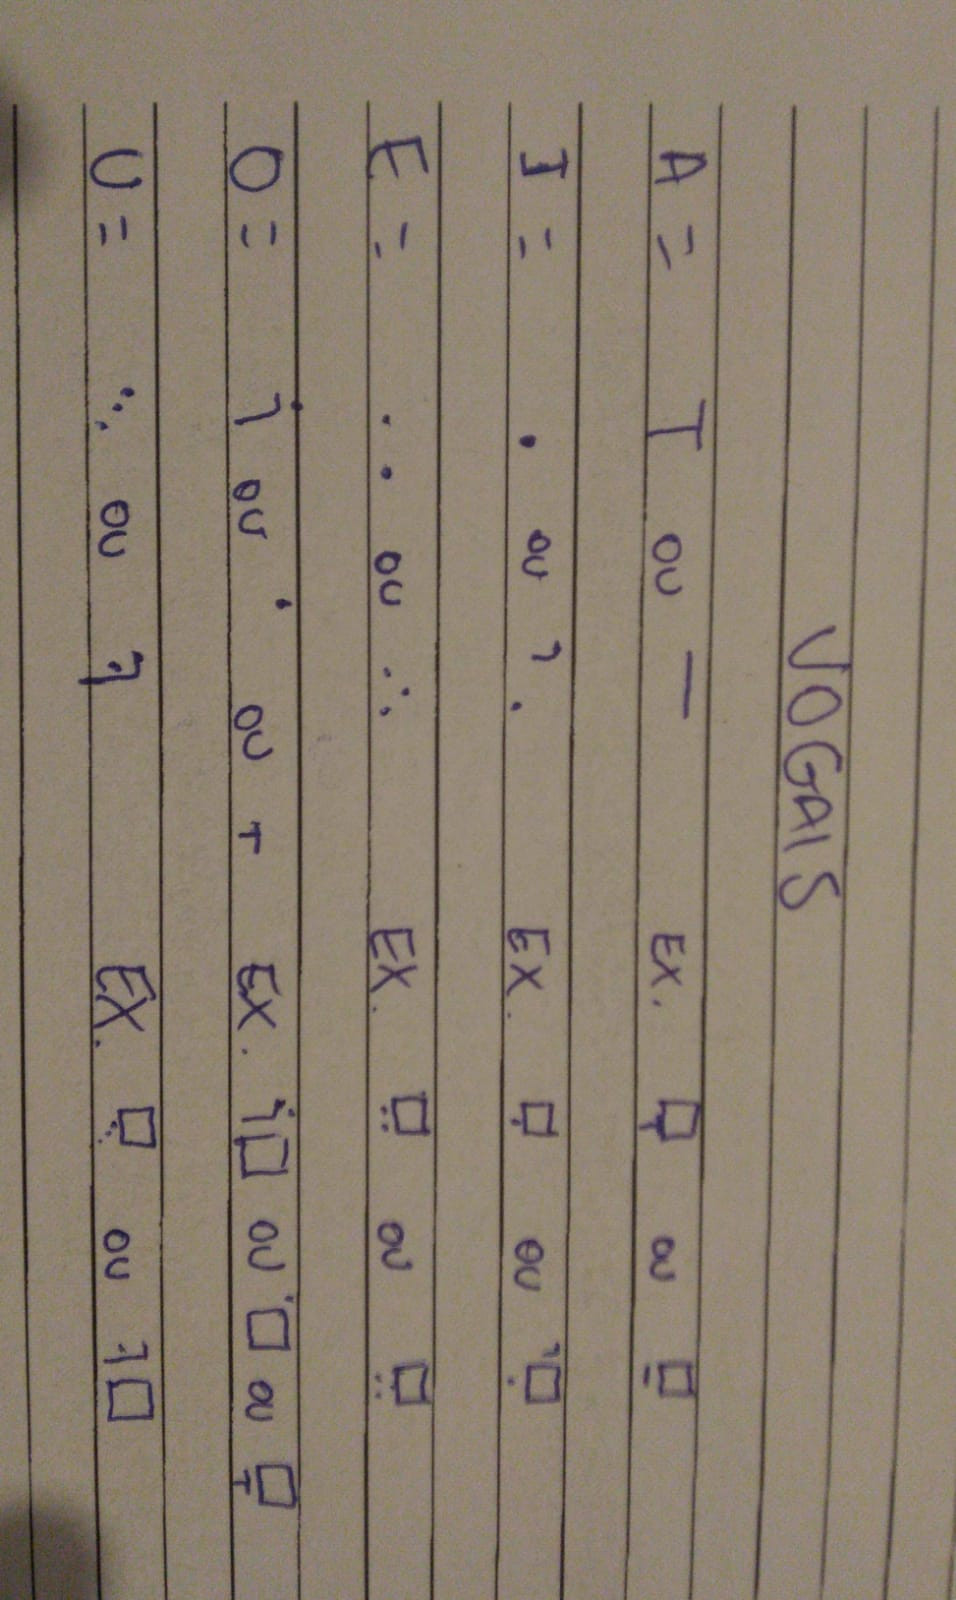 VOGAIS
A = T ou — EX. □ ou □
I = • ou . EX. □ ou □
E = .. ou ∴ EX. □ ou □
O = ou ou EX. □ ou □ ou □
U = ou EX. □ ou □